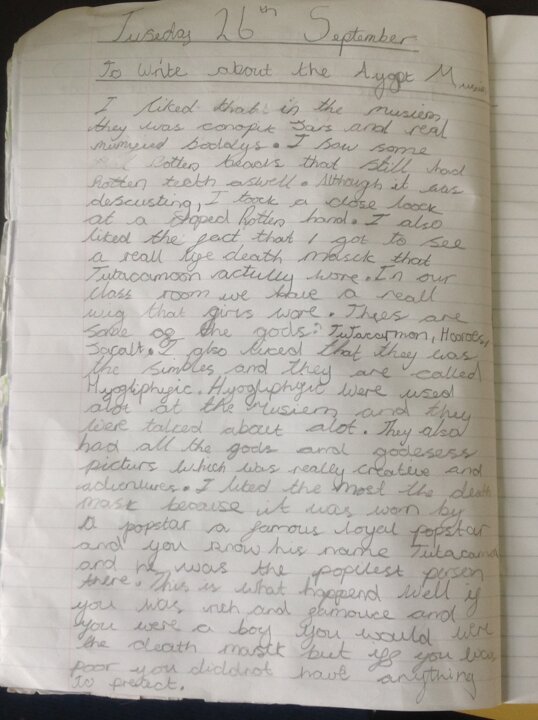 Tuseday 26th September
To write about the Aygpt Musiem
I liked that in the musiem
they was conopik Jars and real
mumyied boddys. I saw some
Rotten heads that still had
Rotten teeth aswell. Although it was
descusting, I took a close loock
at a choped Rotten hand. I also
liked the fact that I got to see
a reall lye death masck that
Tutacamoon actully wore. In our
class room we have a reall
wug that girls wore. Thees are
some og the gods: Tutacarmon, Hooroes,
Jacalt. I also liked that they was
the simbles and they are called
Hyogliphygic. Hyogliphygic were used
alot at the Musiem and they
were talced about alot. They also
had all the gods and godesess
picturs which was really creative and
adicnlures. I liked the most the death
mask because it was worn by
a popstar a famous loyal popstar
and you know his name Tutacama
and he was the populest person
there. This is what happend well if
you was rich and gamouce and
you were a boy you would were
the death maskk but iff you was
poor you diddnot have anything
to pretect.